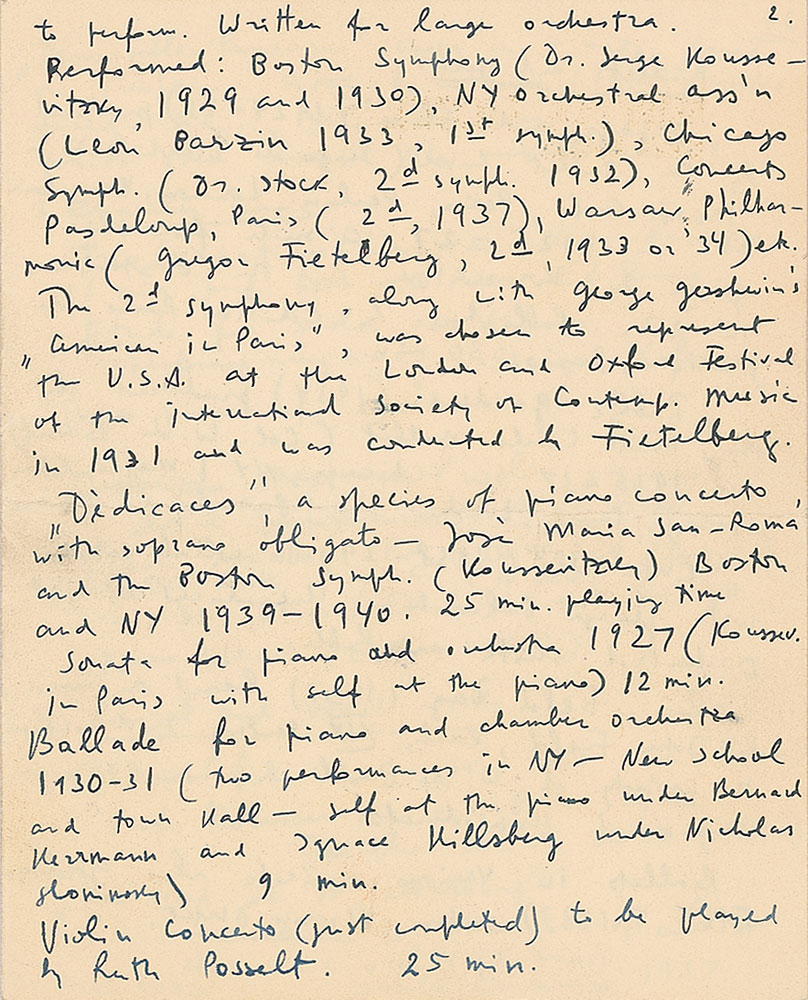 2.
to perform. Written for large orchestra.
Performed: Boston Symphony (Dr. Serge Kousse-
vitzky, 1929 and 1930), NY Orchestral ass'n
(Leon Barzin 1933, 1st symph.), Chicago
Symph. (Dr. Stock, 2d symph. 1932), Concerts
Pasdeloup, Paris (2d, 1937), Warsaw Philhar-
monic (Gregor Fietelberg, 2d, 1933 or '34) etc.
The 2d symphony, along with George Gershwin's
"American in Paris", was chosen to represent
the U.S.A. at the London and Oxford Festival
of the International Society of Contemp. Music
in 1931 and was conducted by Fietelberg.
"Dèdicaces", a species of piano concerto,
with soprano obligato — Josè Maria San-Romà
and the Boston Symph. (Koussevitzky) Boston
and NY 1939-1940. 25 min. playing time
Sonata for piano and orchestra 1927 (Koussev.
in Paris with self at the piano) 12 min.
Ballade for piano and chamber orchestra
1930-31 (two performances in NY — New School
and town Hall — self at the piano under Bernard
Herrmann and Ignace Hillsberg under Nicholas
Slonimsky) 9 min.
Violin Concerto (just completed) to be played
by Ruth Posselt. 25 min.